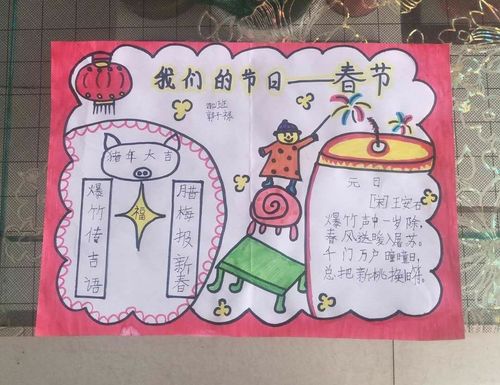 我们的节日——春节
猪年大吉
爆竹传吉语
福
腊梅报新春
元日
[宋]王安石
爆竹声中一岁除,
春风送暖入屠苏。
千门万户曈曈日,
总把新桃换旧符。